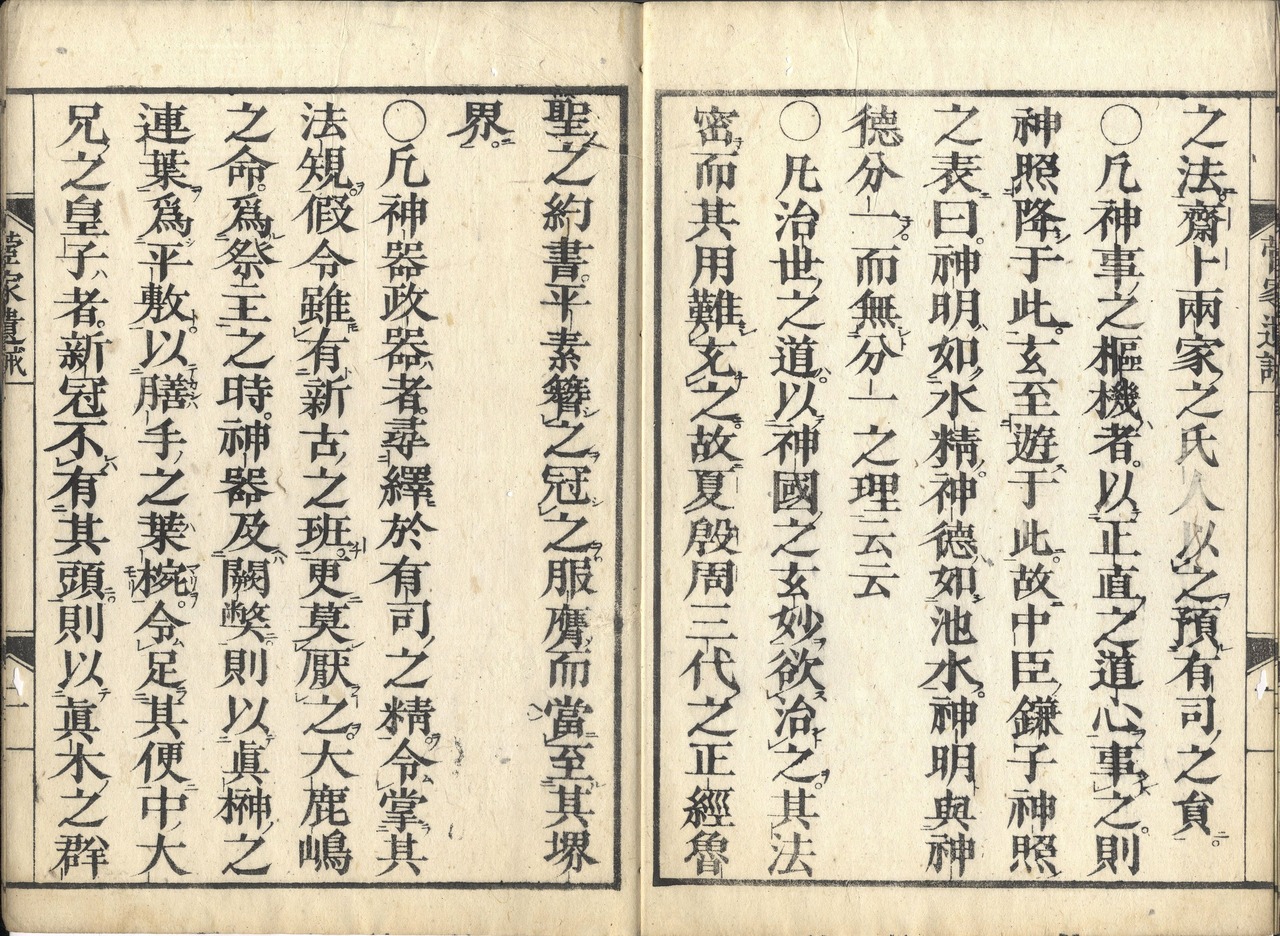 之法齋卜兩家之氏人以之預有司之負
〇凡神事之樞機者以正直之道心事之則
神照降于此玄至遊于此故中臣鎌子神照
之表曰神明如水精神德如池水神明與神
德分一而無分一之理云云
〇凡治世之道以神國之玄妙欲治之其法
密而其用難充之故夏殷周三代之正經魯
聖之約書平素簪之冠之服膺而當至其堺
界
〇凡神器政器者尋繹於有司之精令掌其
法規假令雖有新古之班更莫厭之大鹿嶋
之命爲祭主之時神器及闕弊則以眞榊之
連葉爲平敷以膳手之葉椀令足其便中大
兄之皇子者新冠不有其頭則以眞木之群
菅家遺誡